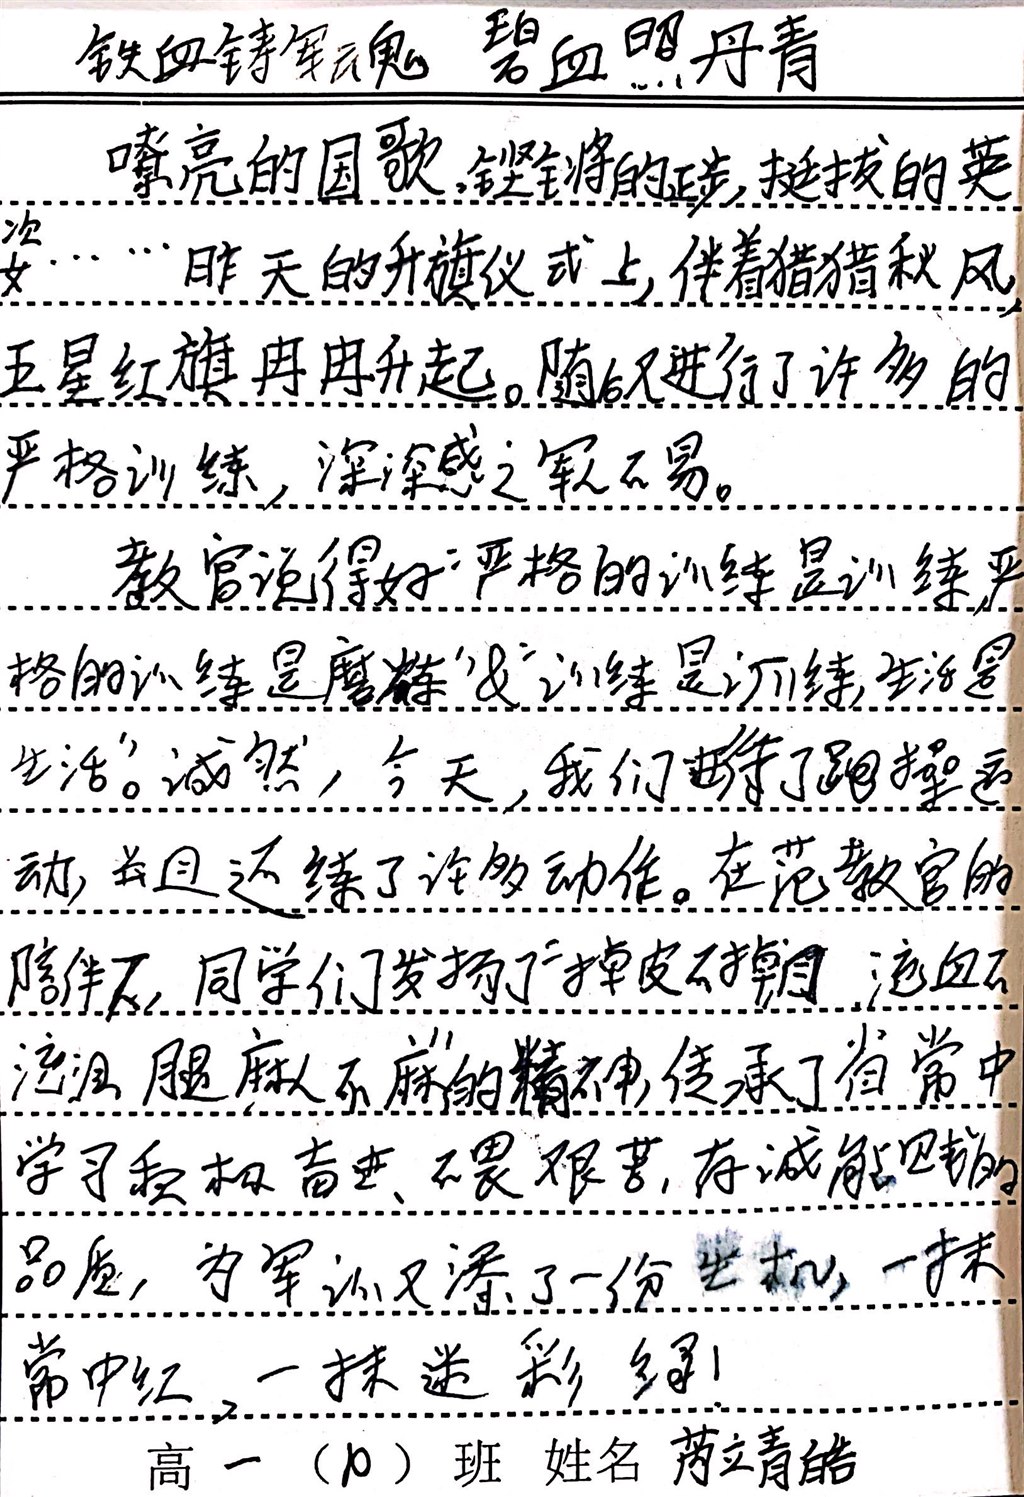 铁血铸军魂 碧血照丹青
嘹亮的国歌,铿锵的正步,挺拔的英
姿……昨天的升旗仪式上,伴着猎猎秋风,
五星红旗冉冉升起。随后又进行了许多的
严格训练,深深感之军人不易。
教官说得好“严格的训练是训练,严
格的训练是磨练”&“训练是训练,生活是
生活”。诚然,今天,我们进行了跑操运
动,并且还练了许多动作。在范教官的
陪伴下,同学们发扬了“掉皮不掉肉,流血不
流泪,腿麻人不麻”的精神,传承了省常中
学习积极奋进、不畏艰苦,存诚能贱的
品质,为军训又添了一份生机,一抹
常中红,一抹迷彩绿!
高一(10)班 姓名 芮立青皓